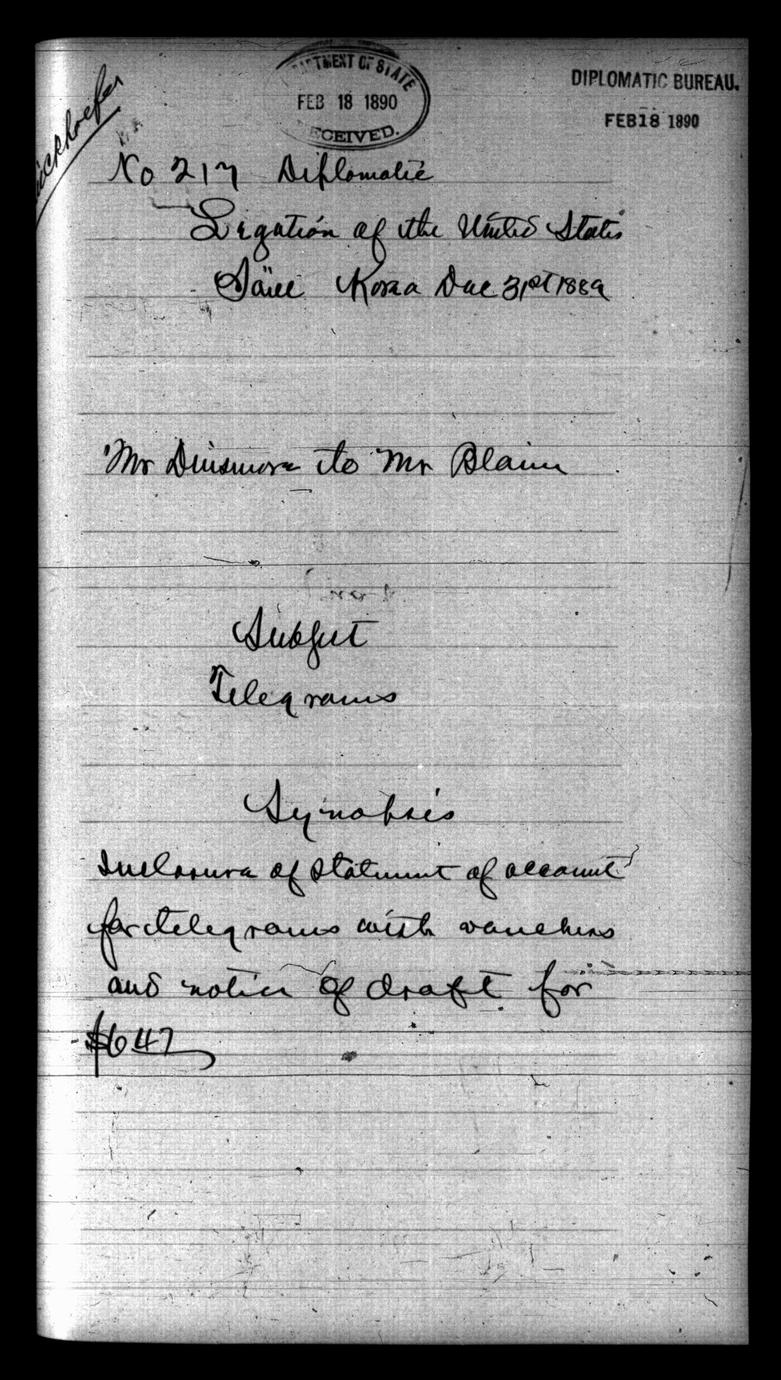 DEPARTMENT OF STATE
FEB 18 1890
RECEIVED.
DIPLOMATIC BUREAU.
FEB 18 1890
No 217 Diplomatic
Legation of the United States
Söul Korea Dec 31st 1889
Mr Dinsmore to Mr Blaine
Subject
Telegrams
Synopsis
Inclosure of Statement of account
for telegrams with vouchers
and notice of draft for
$647